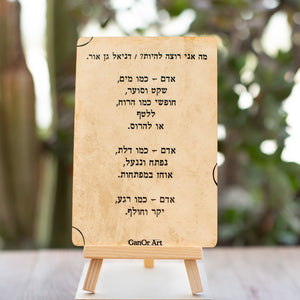 מה אני רוצה להיות? / דניאל גן אור.
אדם – כמו מים,
שקט וסוער,
חופשי כמו הרוח,
ללטף
או להרוס.
אדם – כמו דלת,
נפתח וננעל,
אוחז במפתחות.
אדם – כמו רגע,
יקר וחולף.
GanOr Art